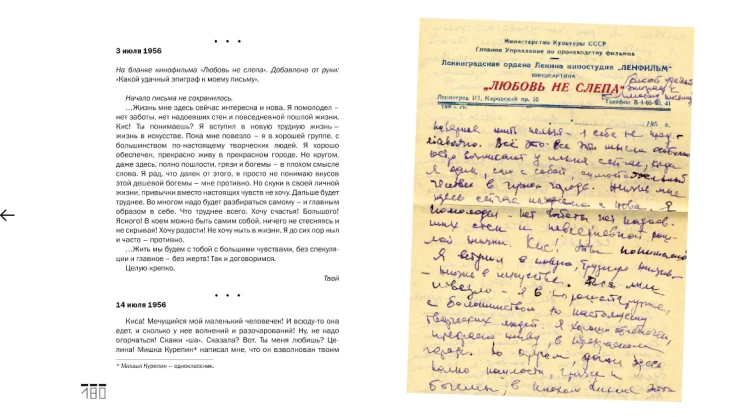 • • •
3 июля 1956
На бланке кинофильма «Любовь не слепа». Добавлено от руки:
«Какой удачный эпиграф к моему письму».
Начало письма не сохранилось.
...Жизнь мне здесь сейчас интересна и нова. Я помолодел –
нет заботы, нет надоевших стен и повседневной пошлой жизни.
Кис! Ты понимаешь? Я вступил в новую трудную жизнь –
жизнь в искусстве. Пока мне повезло – я в хорошей группе, с
большинством по-настоящему творческих людей. Я хорошо
обеспечен, прекрасно живу в прекрасном городе. Но кругом,
даже здесь, полно пошлости, грязи и богемы – в плохом смысле
слова. Я рад, что далек от этого, я просто не понимаю вкусов
этой дешевой богемы – мне противно. Но скуки в своей личной
жизни, привычки вместо настоящих чувств не хочу. Дальше будет
труднее. Во многом надо будет разбираться самому – и главным
образом в себе. Что труднее всего. Хочу счастья! Большого!
Ясного! В коем можно быть самим собой, ничего не стесняясь и
не скрывая! Хочу радости! Не хочу ныть в жизни. Я до сих пор ныл
и часто – противно.
...Жить мы будем с тобой с большими чувствами, без спекуля-
ции и главное – без жертв! Так и договоримся.
Целую крепко.
Твой
• • •
14 июля 1956
Киса! Мечущийся мой маленький человечек! И всюду-то она
едет, и сколько у нее волнений и разочарований! Ну, не надо
огорчаться! Скажи «ша». Сказала? Вот. Ты меня любишь? Це-
лина! Мишка Курепин* написал мне, что он взволнован твоим
* Михаил Курепин – одноклассник.
180
Министерство Культуры СССР
Главное Управление по производству фильмов
Ленинградская ордена Ленина киностудия „ЛЕНФИЛЬМ"
КИНОКАРТИНА
„ЛЮБОВЬ НЕ СЛЕПА"
Ленинград, Кировский пр. 10
Телефон
195
Я один, сам с собой, самостоятельный
человек в чужом городе. Жизнь мне
здесь сейчас интересна и нова. Я
помолодел - нет заботы, нет надоев-
ших стен и повседневной пош-
лой жизни. Кис! Ты понимаешь?
Я вступил в новую, трудную жизнь -
- жизнь в искусстве. Пока мне
повезло - я в хорошей группе,
с большинством по-настоящему
творческих людей. Я хорошо обеспечен,
прекрасно живу в прекрасном
городе. Но кругом, даже здесь
полно пошлости, грязи и
богемы, в плохом смысле этого